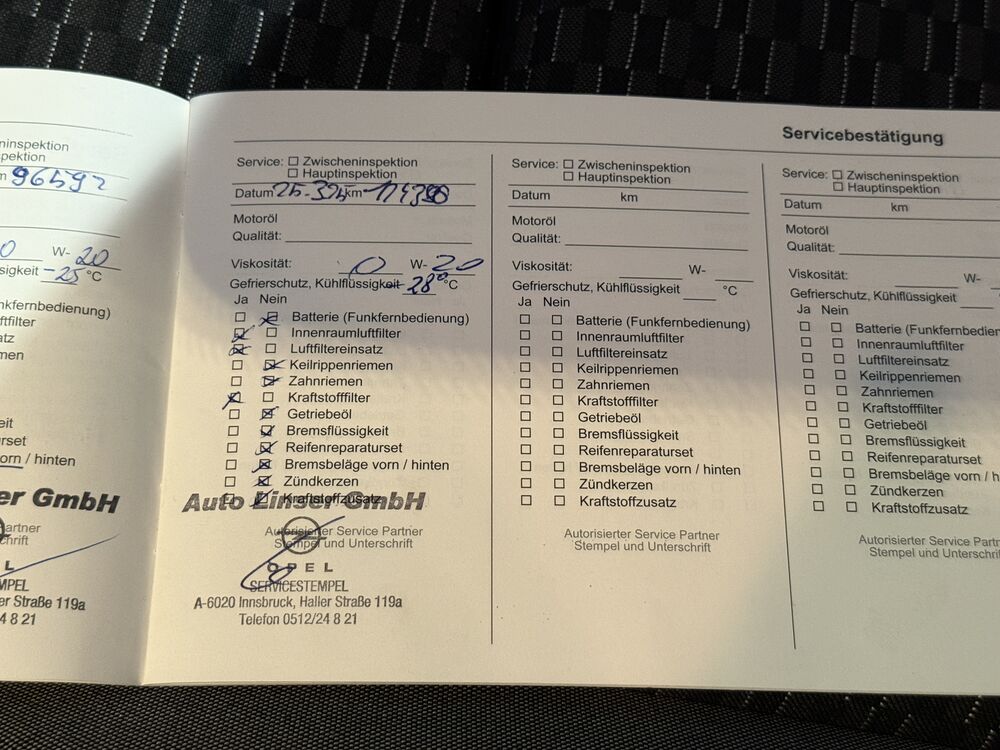 Servicebestätigung
ninspektion
pektion
96592
W- 20
sigkeit -25 °C
nkfernbedienung)
tfilter
atz
men
eit
urset
orn / hinten
er GmbH
artner
chrift
L
MPEL
er Straße 119a
4 8 21
Service: Zwischeninspektion
Hauptinspektion
Datum km
Motoröl
Qualität:
Viskosität: 0 W- 20
Gefrierschutz, Kühlflüssigkeit -28° °C
Ja Nein
Batterie (Funkfernbedienung)
Innenraumluftfilter
Luftfiltereinsatz
Keilrippenriemen
Zahnriemen
Kraftstofffilter
Getriebeöl
Bremsflüssigkeit
Reifenreparaturset
Bremsbeläge vorn / hinten
Zündkerzen
Kraftstoffzusatz
Auto Linser GmbH
Autorisierter Service Partner
Stempel und Unterschrift
OPEL
SERVICESTEMPEL
A-6020 Innsbruck, Haller Straße 119a
Telefon 0512/24 8 21
Service: Zwischeninspektion
Hauptinspektion
Datum km
Motoröl
Qualität:
Viskosität: W-
Gefrierschutz, Kühlflüssigkeit °C
Ja Nein
Batterie (Funkfernbedienung)
Innenraumluftfilter
Luftfiltereinsatz
Keilrippenriemen
Zahnriemen
Kraftstofffilter
Getriebeöl
Bremsflüssigkeit
Reifenreparaturset
Bremsbeläge vorn / hinten
Zündkerzen
Kraftstoffzusatz
Autorisierter Service Partner
Stempel und Unterschrift
Service: Zwischeninspektion
Hauptinspektion
Datum km
Motoröl
Qualität:
Viskosität: W-
Gefrierschutz, Kühlflüssigkeit
Ja Nein
Batterie (Funkfernbedien
Innenraumluftfilter
Luftfiltereinsatz
Keilrippenriemen
Zahnriemen
Kraftstofffilter
Getriebeöl
Bremsflüssigkeit
Reifenreparaturset
Bremsbeläge vorn / h
Zündkerzen
Kraftstoffzusatz
Autorisierter Service Partn
Stempel und Unterschri